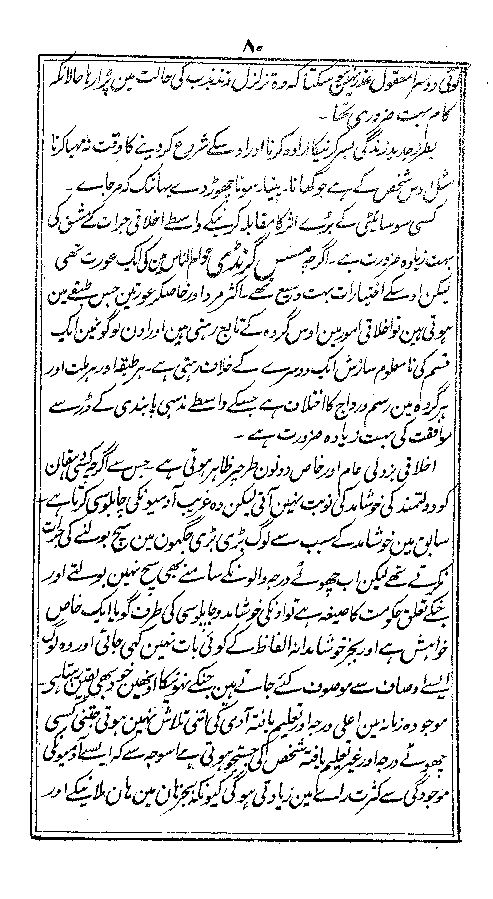 ۸۰
کوئی دوسرا معقول عذر نہین ہوسکتا کہ وہ تزلزل و تذبذب کی حالت مین پڑا رہا حالانکہ
کام بہت ضروری تھا ۔
بطرز جدید زندگی بسر کرنیکا ارادہ کرنا اور اوسکے شروع کر دینے کا وقت نہ مہیا کرنا
مثل اوس شخص کے ہے جو کھانا ۔ پینا ۔ سونا چھوڑ دے یہانتک کہ مر جاے ۔
کسی سوسائیٹی کے برے اثر کا مقابلہ کرنیکے واسطے اخلاقی جرات کے مشق کی
بہت زیادہ ضرورت ہے ۔ اگرچہ مسس گرنڈی عوام الناس مین کی ایک عورت تھی
لیکن اوسکے اختیارات بہت وسیع تھے ۔ اکثر مرد اور خاصکر عورتین جس طبقے مین
ہوتی ہین تو اخلاقی امور مین اوس گروہ کے تابع رہتی ہین اور اون لوگونمین ایک
قسم کی نامعلوم سازش ایک دوسرے کے خلاف رہتی ہے ۔ ہر طبقہ اور ہر ملت اور
ہر گروہ مین رسم و رواج کا اختلاف ہے جسکے واسطے مذہبی پابندی کے ڈر سے
موافقت کی بہت زیادہ ضرورت ہے ۔
اخلاقی بزدلی عام اور خاص دونون طرح پر ظاہر ہوتی ہے ۔ جس سے اگرچہ کسی
کو دولتمند کی خوشامد کی نوبت نہین آتی لیکن وہ غریب آدمیونکی چاپلوسی کرتا ہے ۔
سابق مین خوشامد کے سبب سے لوگ بڑی بڑی جگہون مین سچ بولنے کی جرات
نکرتے تھے لیکن اب چھوٹے درجہ والونکے سامنے بھی سچ نہین بولتے اور
جنکے تعلق حکومت کا صیغہ ہے تو اونکی خوشامد و چاپلوسی کی طرف گویا ایک خاص
خواہش ہے اور بجز خوشامدانہ الفاظ کے کوئی بات نہین کہی جاتی اور وہ لوگ
ایسے اوصاف سے موصوف کئے جاتے ہین جنکے نہونیکا اونھین خود بھی یقین ہوتا ہے ۔
موجودہ زمانہ مین اعلیٰ درجہ اور تعلیم یافتہ آدمی کی اتنی تلاش نہین ہوتی جتنی کسی
چھوٹے درجہ اور غیر تعلیم یافتہ شخص کی جستجو ہوتی ہے اسوجہ سے کہ ایسے آدمیونکی
موجودگی سے کثرت راے مین زیادتی ہوگی کیونکہ بجز ہان مین ہان ملانیکے اور